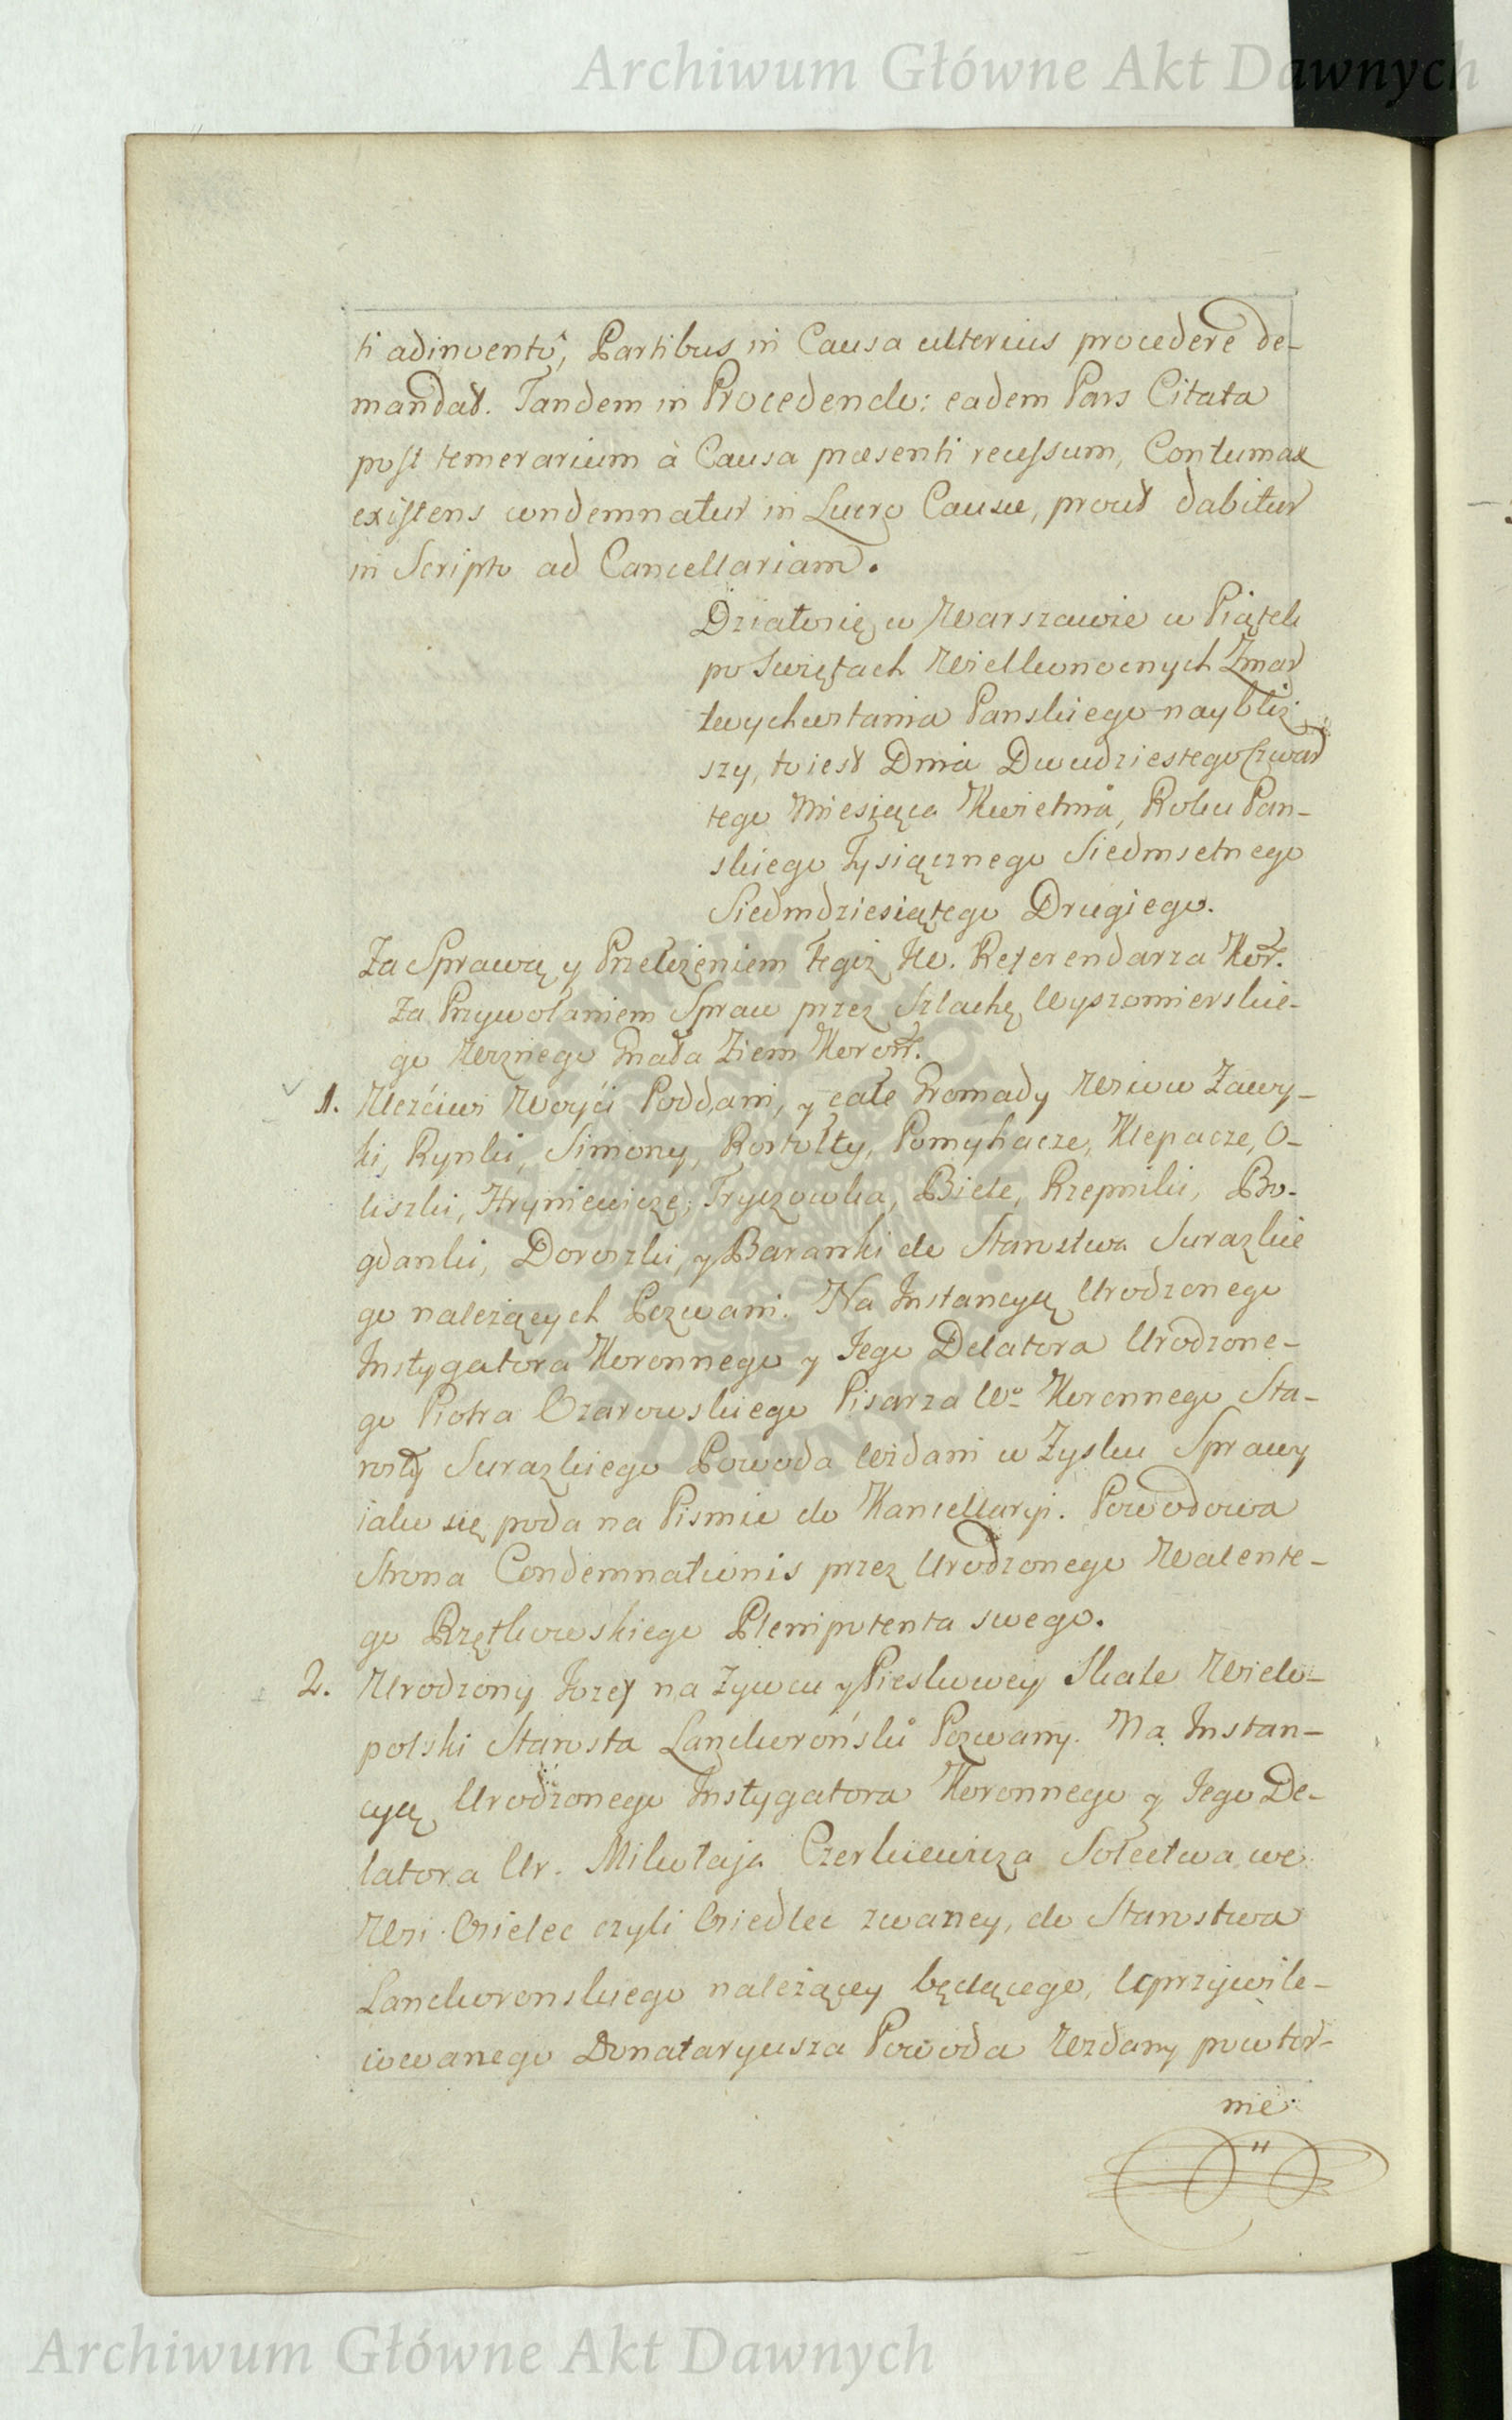 Archiwum Główne Akt Dawnych
ti adinventô, Partibus in Causa ulterius procedere de-
mandat. Tandem in Procedendo: eadem Pars Citata
post temerarium à Causa præsenti recessum, Contumax
existens condemnatur in Lucro Causæ, prout dabitur
in Scripto ad Cancellariam.
Działo się w Warszawie w Piątek
po Swiętach Wielkonocnych Zmar
twychwstania Panskiego naybliż
szy, to iest Dnia Dwudziestego Czwar
tego Miesiąca Kwietnia, Roku Pan-
skiego Tysiącznego Siedmsetnego
Siedmdziesiątego Drugiego.
Za Sprawą y Przełożeniem Tegoż Jw. Referendarza Kor.
Za Przywołaniem Spraw przez Szlachę Wyszomierskie-
go Woznego Gnała Ziem Koron.
1. Uczciwi Woyći Poddani, y całe Gromady Wsiow Zawy-
ki, Rynki, Simony, Rostołty, Pomyhacze, Klepacze, O-
liszki, Hryniewicze, Tryczowka, Biele, Rzepniki, Bo-
gdanki, Doroszki, y Baranki do Starostwa Surazkie
go należących Pozwani. Na Instancyą Urodzonego
Instygatora Koronnego y Jego Delatora Urodzone-
go Piotra Ożarowskiego Pisarza Wo Koronnego Sta-
rosty Surazkiego Powoda wzdani w Zysku Sprawy
iako się poda na Pismie do Kancellaryi. Powodowa
Strona Condemnationis przez Urodzonego Walente-
go Rzętkowskiego Plenipotenta swego.
2. Urodzony Jozef na Zywcu y Pieskowey Skale Wielo-
polski Starosta Lanckoroński Pozwany. Na Instan-
cyą Urodzonego Instygatora Koronnego y Jego De-
latora Ur. Mikołaja Czerkiewicza Sołectwa we
Wsi Osielec czyli Osiedlec zwaney, do Starostwa
Lanckoronskiego należącey będącego, Uprzywile-
iowanego Donataryusza Powoda Wzdany powtor-
nie
Archiwum Główne Akt Dawnych